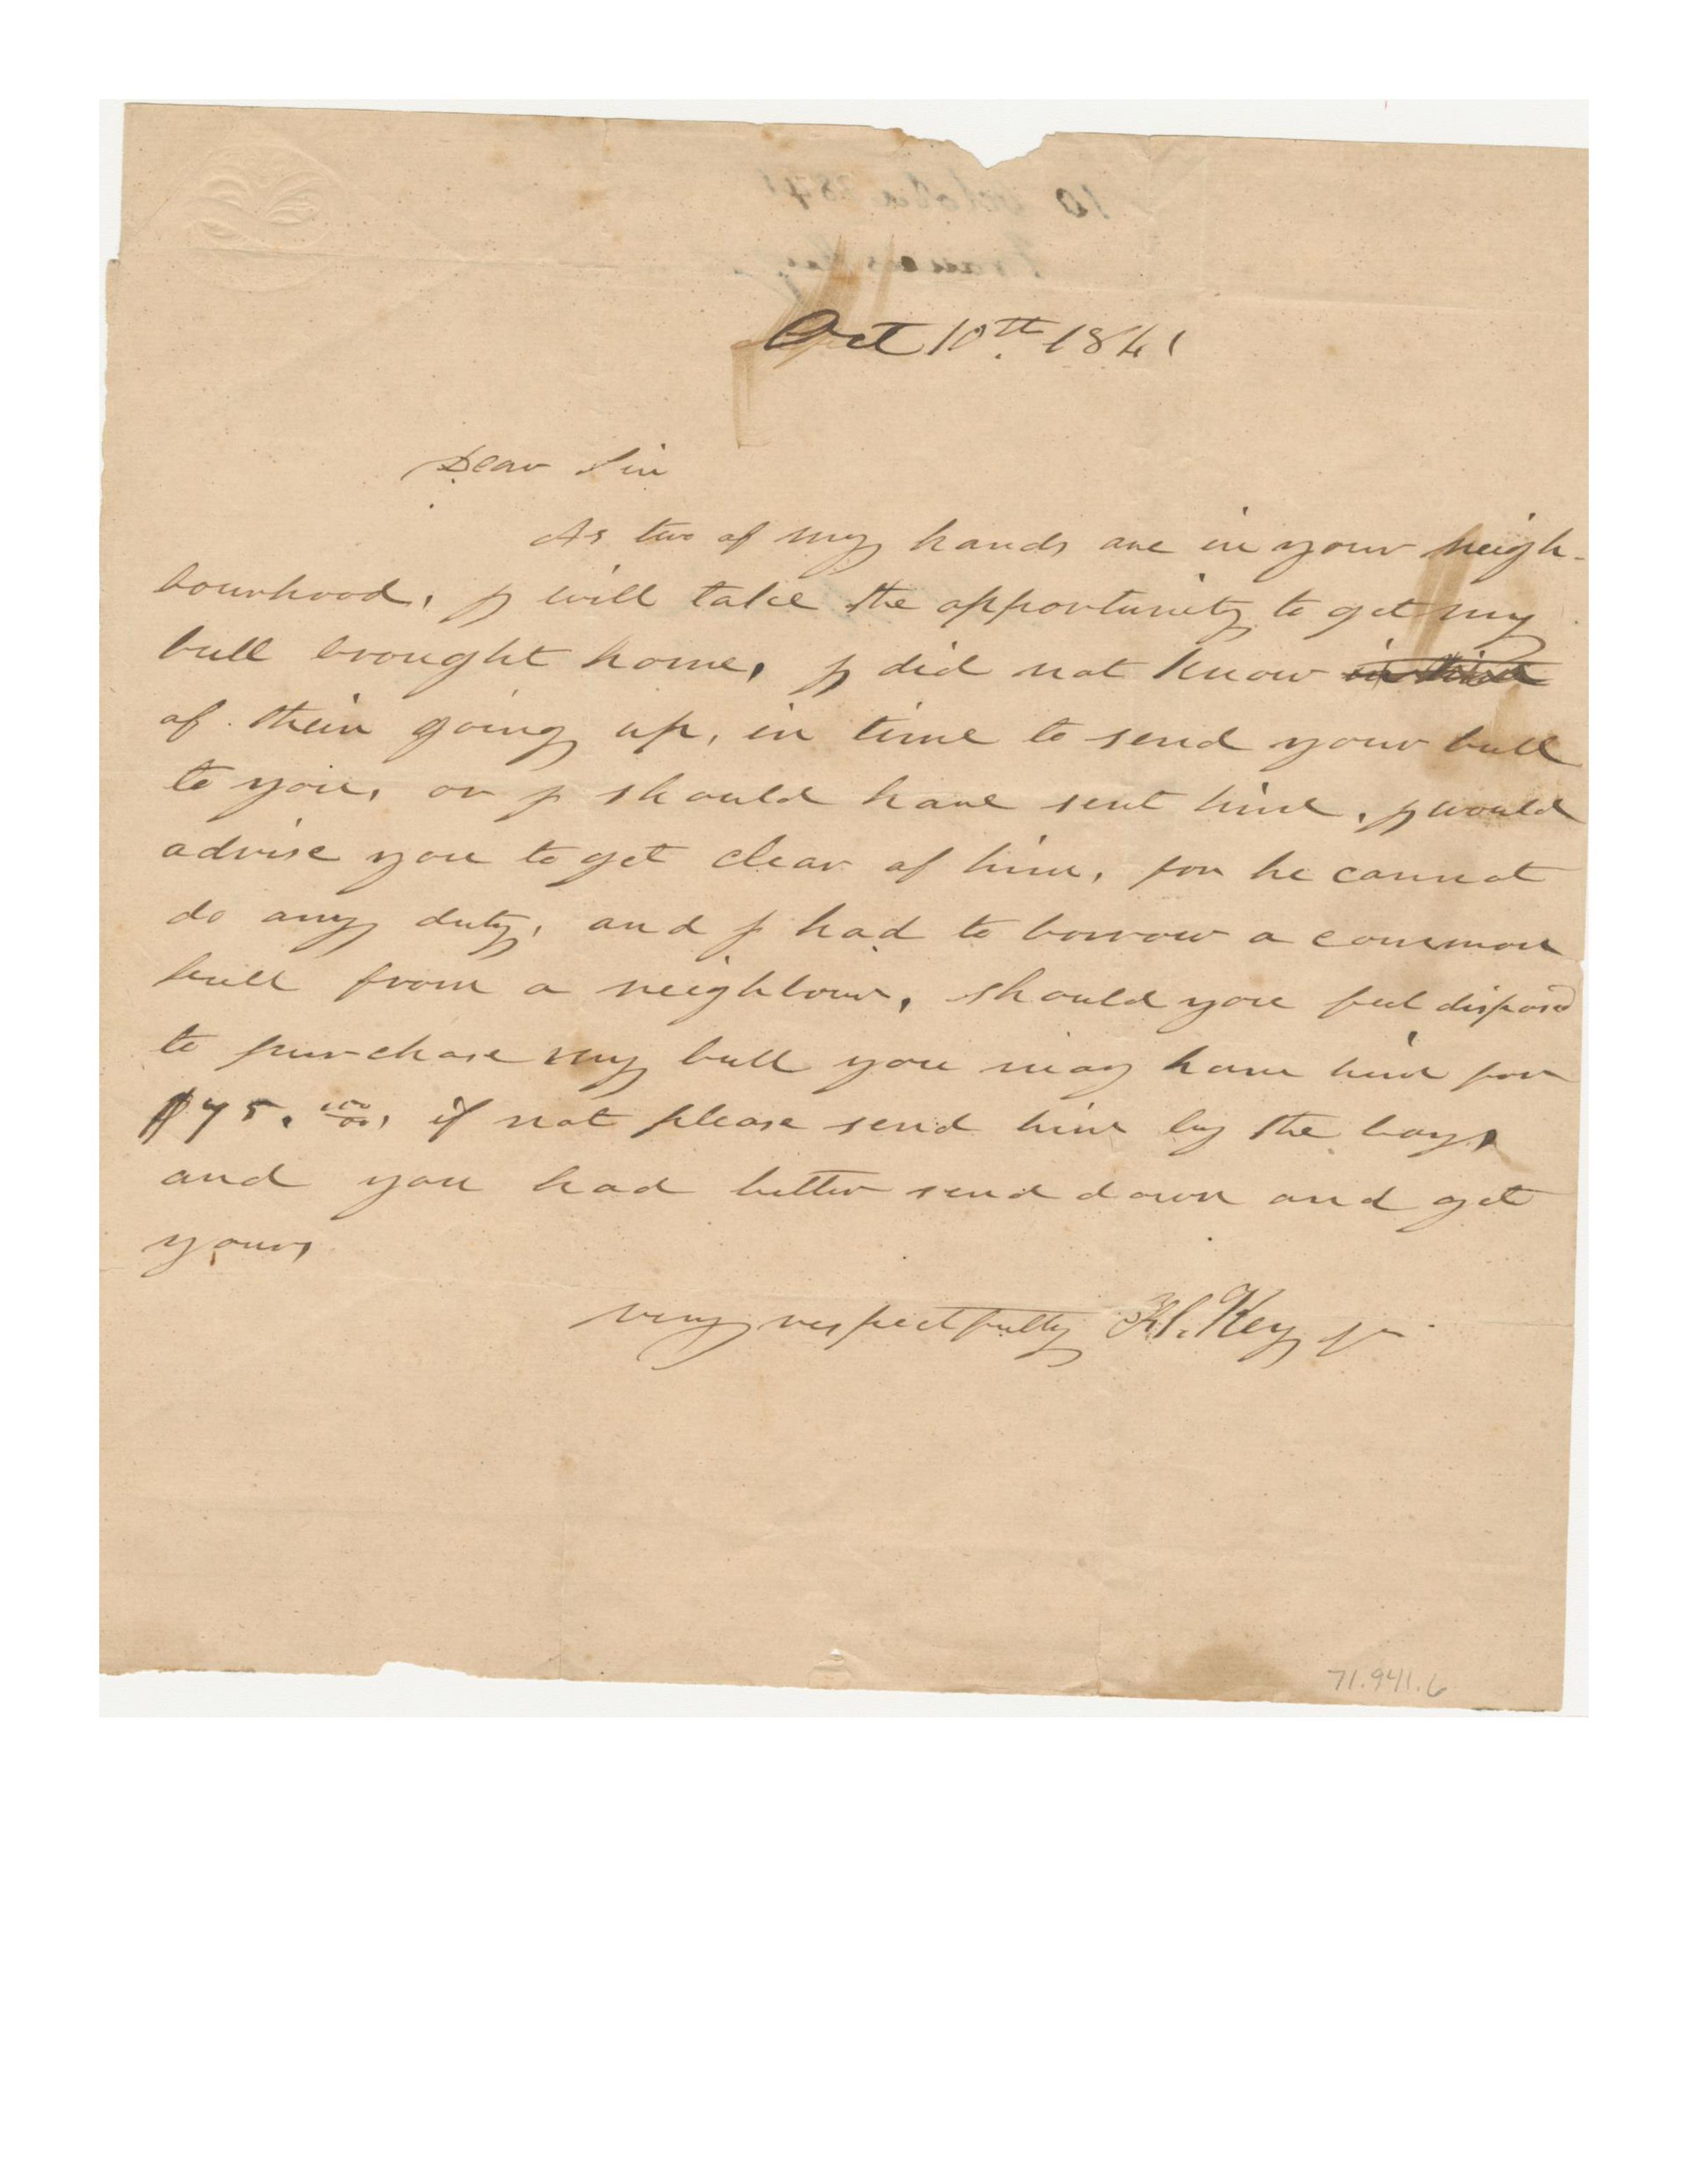 Oct 10th 1841
Dear Sir
As two of my hands are in your neigh-
bourhood, I will take the opportunity to get my
bull brought home, I did not know in time
of their going up, in time to send your bull
to you, or I should have sent him, I would
advise you to get clear of him, for he cannot
do any duty, and I had to borrow a common
bull from a neighbour, should you feel disposed
to purchase my bull you may have him for
$75. if not please send him by the boys,
and you had better send down and get
yours,
very respectfully F S. Key jr
71.941.6